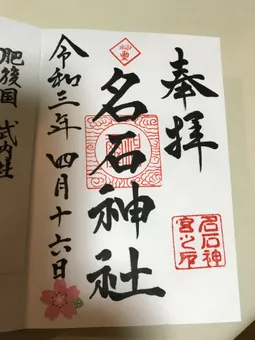 奉拝
名石神社
令和三年四月十六日
名石神宮之印
肥後国 式内社